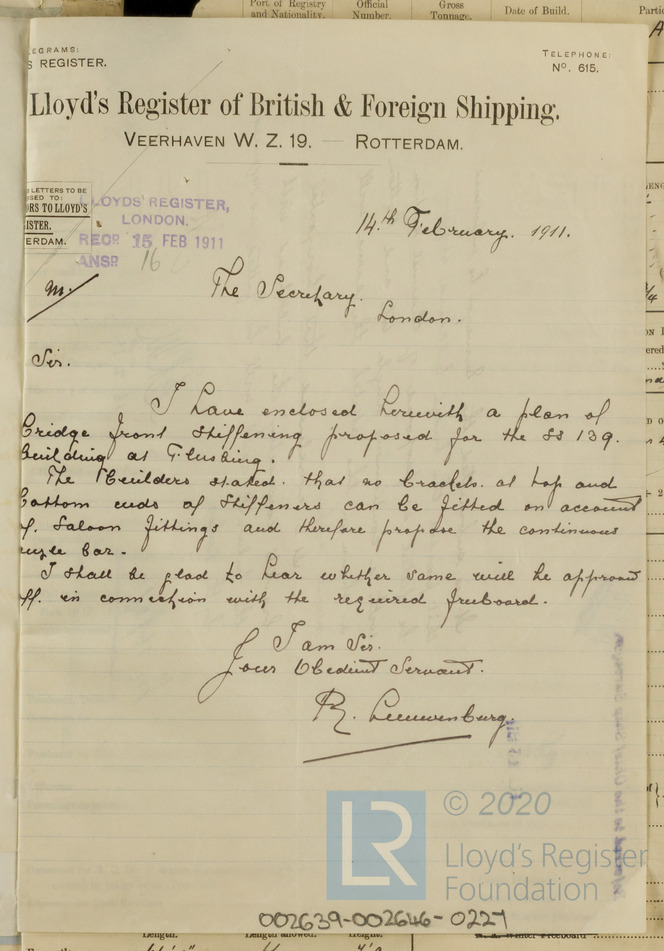 Port of Registry and Nationality. Official Number. Gross Tonnage. Date of Build.
EGRAMS:
S REGISTER.
TELEPHONE:
No. 615.
Lloyd's Register of British & Foreign Shipping.
VEERHAVEN W. Z. 19. — ROTTERDAM.
LETTERS TO BE
SED TO:
ORS TO LLOYD'S
ISTER.
ERDAM.
LLOYDS' REGISTER,
LONDON.
RECD 15 FEB 1911
ANSD 16
14th February. 1911.
m.
The Secretary.
London.
Sir.
I have enclosed herewith a plan of
Bridge front stiffening proposed for the SS 139.
building at Flushing.
The Builders stated that no brackets at top and
bottom ends of stiffeners can be fitted on account
of saloon fittings and therefore propose the continuous
angle bar.
I shall be glad to hear whether same will be approved
off. in connection with the required freeboard.
I am Sir.
Your Obedient Servant.
R. Leeuwenburg.
© 2020
LR
Lloyd's Register
Foundation
002639-002646-0227
Length. Length. Height.